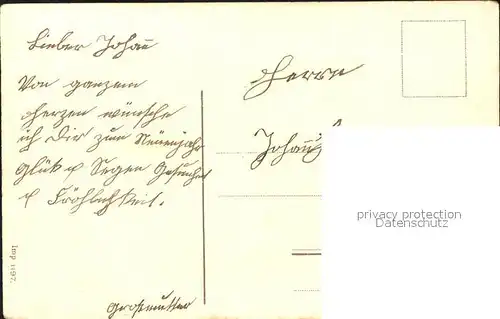 Lieber Johann
Von ganzem
Herzen wünsche
ich Dir zum Neuenjahr
Glük & Segen Gesundheit
& Fröhlichkeit.
Großmutter
Herrn
Johann
privacy protection
Datenschutz
Imp 1197.